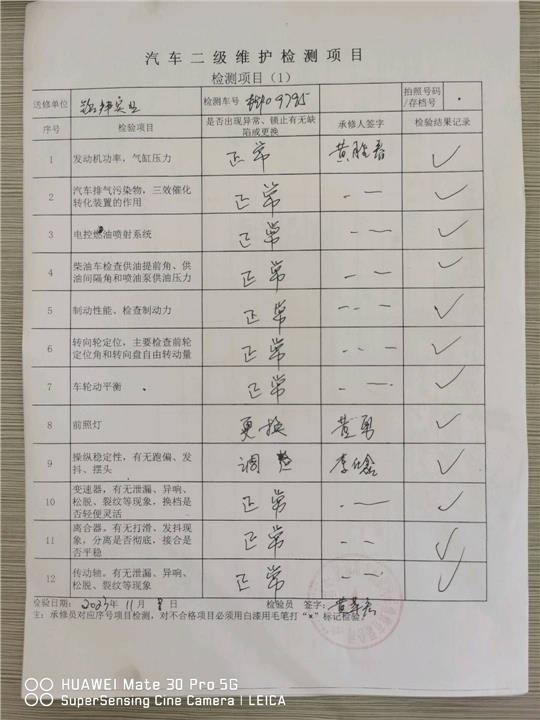 汽车二级维护检测项目
检测项目（1）
送修单位 检测车号 拍照号码/存档号
序号 检验项目 是否出现异常、锁止有无缺陷或更换 承修人签字 检验结果记录
1 发动机功率，气缸压力 正常 ✓
2 汽车排气污染物，三效催化转化装置的作用 正常 ✓
3 电控燃油喷射系统 正常 ✓
4 柴油车检查供油提前角、供油间隔角和喷油泵供油压力 正常 ✓
5 制动性能、检查制动力 正常 ✓
6 转向轮定位，主要检查前轮定位角和转向盘自由转动量 正常 ✓
7 车轮动平衡 正常 ✓
8 前照灯 更换 黄勇 ✓
9 操纵稳定性，有无跑偏、发抖、摆头 调整 ✓
10 变速器，有无泄漏、异响、松脱、裂纹等现象，换档是否轻便灵活 正常 ✓
11 离合器。有无打滑、发抖现象，分离是否彻底，接合是否平稳 正常 ✓
12 传动轴。无泄漏、异响、松脱、裂纹等现象 正常 ✓
检验日期：2023年11月8日 检验员 签字：
主：承修员对应序号项目检测，对不合格项目必须用白漆用毛笔打“×”标记检验。
HUAWEI Mate 30 Pro 5G
SuperSensing Cine Camera | LEICA